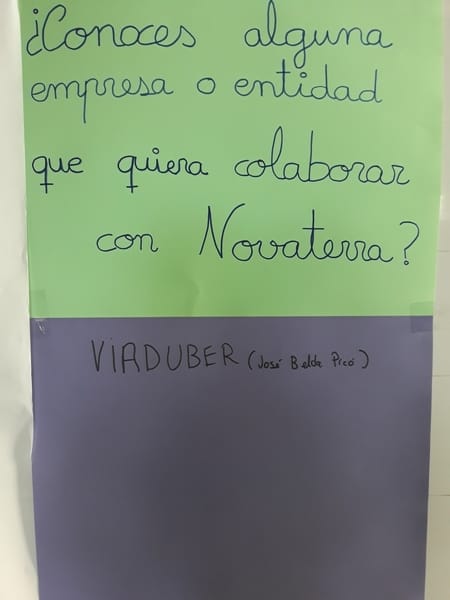 ¿Conoces alguna
empresa o entidad
que quiera colaborar
con Novaterra?
VIADUBER (José Belda Picó)